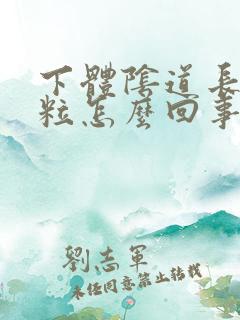 下體陰道長
粒怎麼回事
劉志軍
未經同意禁止轉載